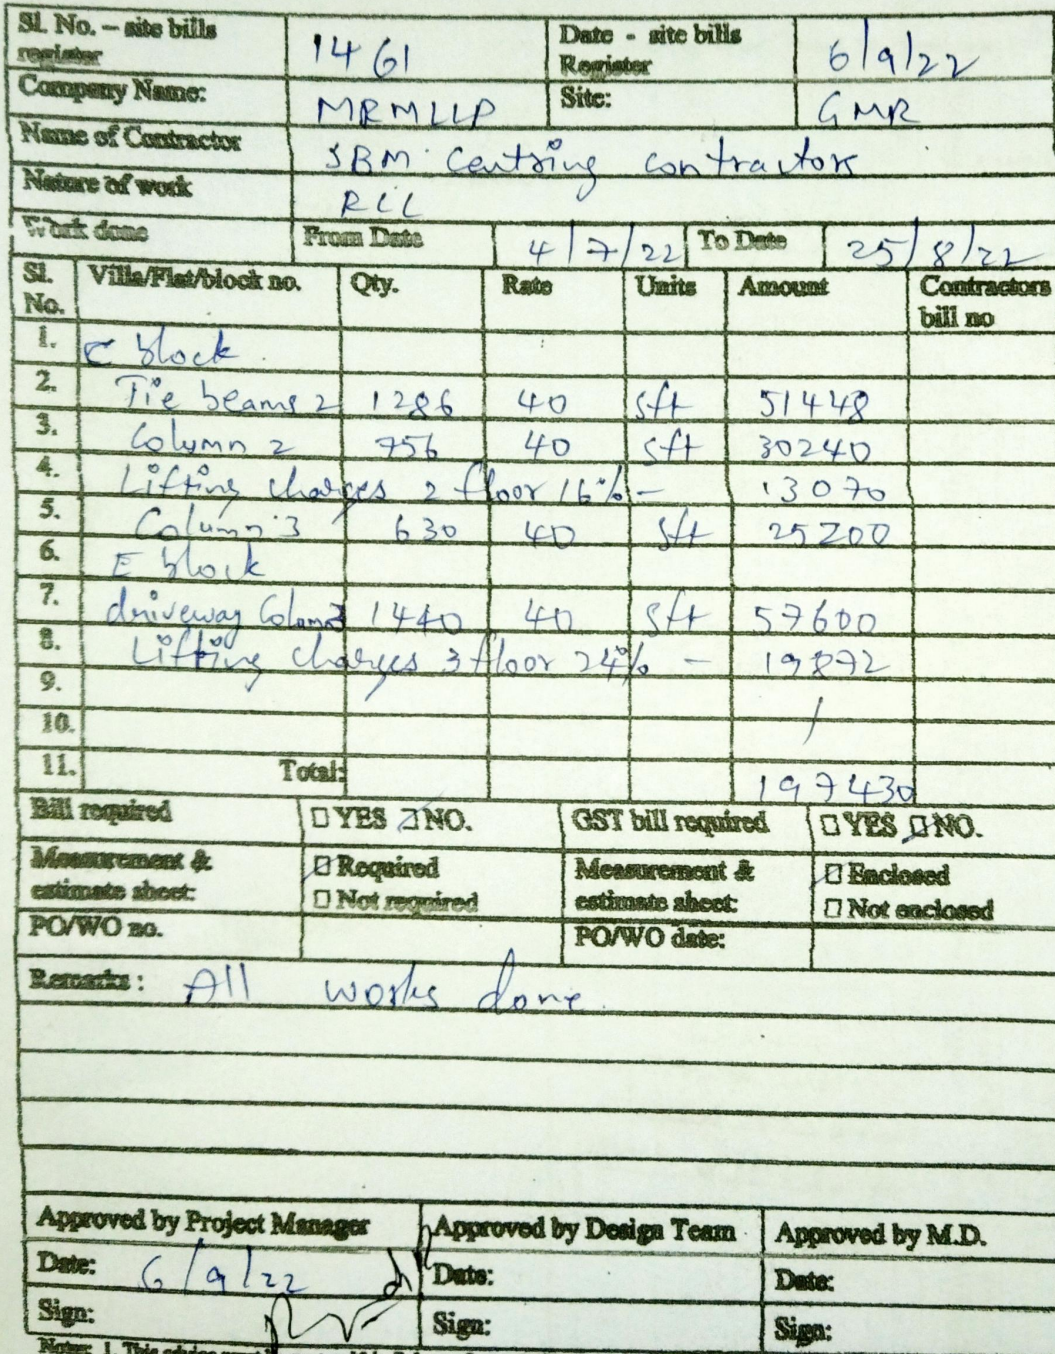 Sl. No. – site bills register 1461 Date - site bills Register 6/9/22
Company Name: MRMLLP Site: GMR
Name of Contractor SBM Centring contractors
Nature of work RCC
Work done From Date 4/7/22 To Date 25/8/22
Sl. No. Villa/Flat/block no. Qty. Rate Units Amount Contractors bill no
1. C block
2. Tie beams 2 1286 40 sft 51448
3. Column 2 756 40 sft 30240
4. Lifting charges 2 floor 16% - 13070
5. Column 3 630 40 sft 25200
6. E block
7. driveway Colum3 1440 40 sft 57600
8. Lifting charges 3 floor 24% - 19872
9.
10. /
11. Total: 197430
Bill required YES NO. GST bill required YES NO.
Measurement & estimate sheet: Required Not required Measurement & estimate sheet: Enclosed Not enclosed
PO/WO no. PO/WO date:
Remarks: All works done
Approved by Project Manager Approved by Design Team Approved by M.D.
Date: 6/9/22 Date: Date:
Sign: Sign: Sign:
Notes: 1. This advice